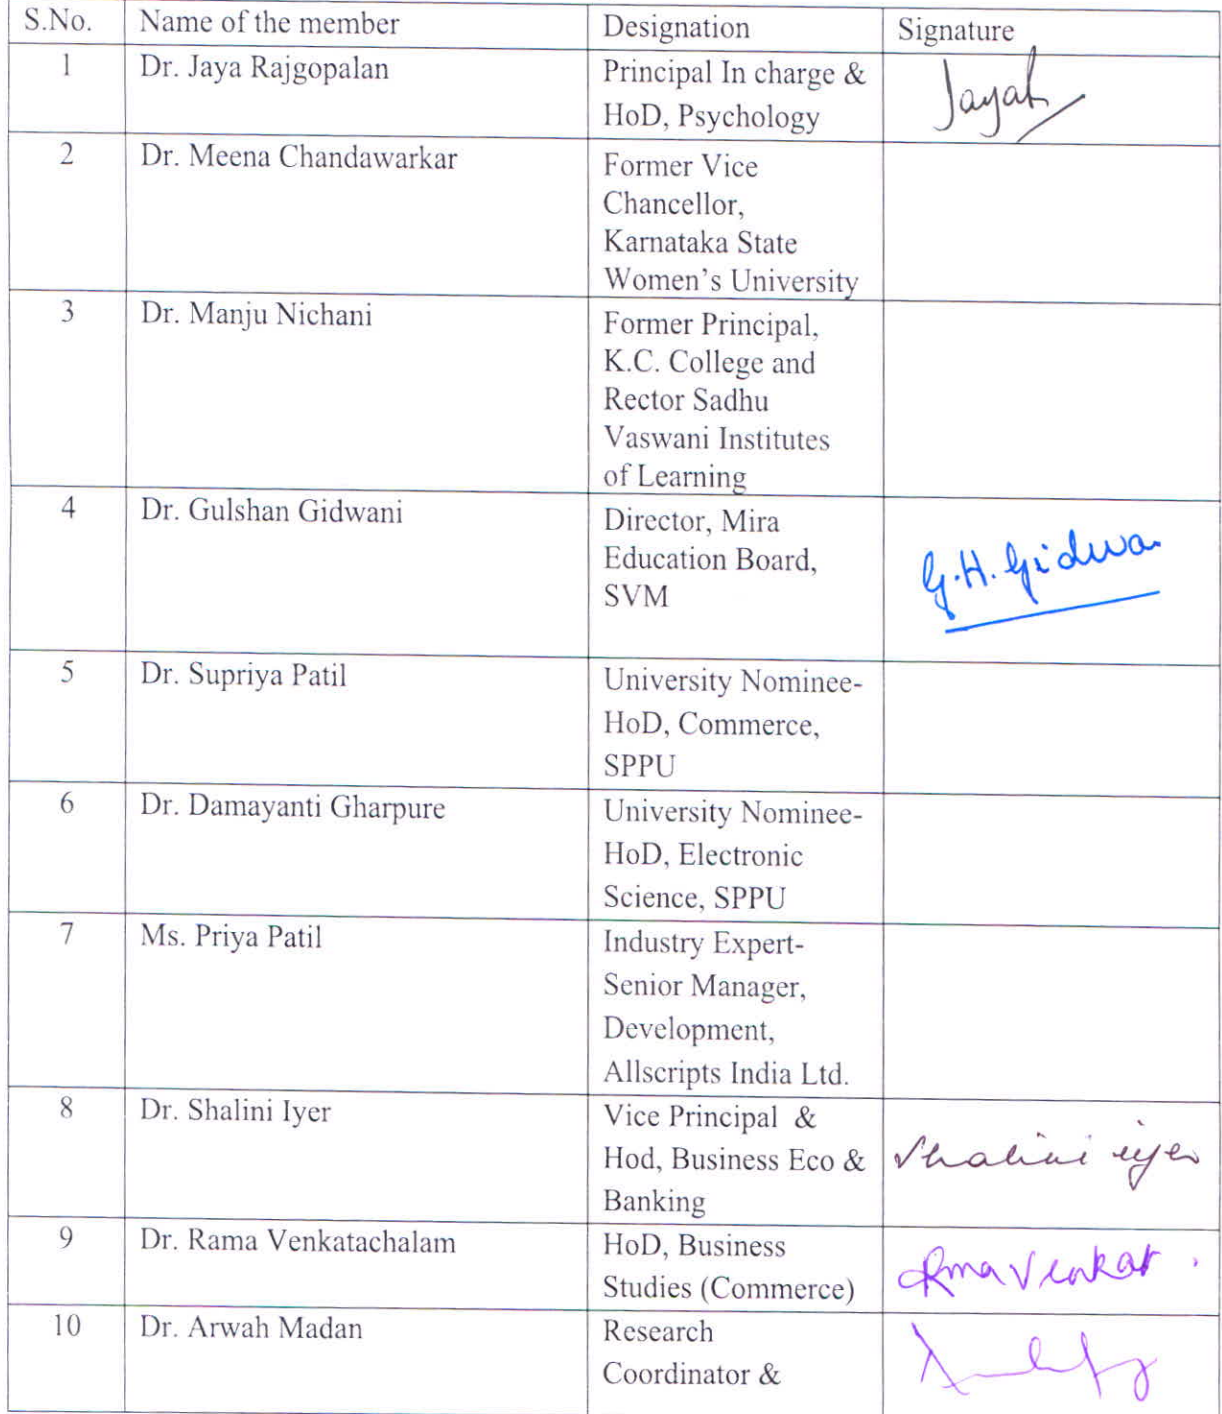 S.No. Name of the member Designation Signature
1 Dr. Jaya Rajgopalan Principal In charge & Jayah
HoD, Psychology
2 Dr. Meena Chandawarkar Former Vice
Chancellor,
Karnataka State
Women's University
3 Dr. Manju Nichani Former Principal,
K.C. College and
Rector Sadhu
Vaswani Institutes
of Learning
4 Dr. Gulshan Gidwani Director, Mira
Education Board, G.H. Gidwa
SVM
5 Dr. Supriya Patil University Nominee-
HoD, Commerce,
SPPU
6 Dr. Damayanti Gharpure University Nominee-
HoD, Electronic
Science, SPPU
7 Ms. Priya Patil Industry Expert-
Senior Manager,
Development,
Allscripts India Ltd.
8 Dr. Shalini Iyer Vice Principal &
Hod, Business Eco & Shalini iyer
Banking
9 Dr. Rama Venkatachalam HoD, Business
Studies (Commerce) Rma Venkat.
10 Dr. Arwah Madan Research
Coordinator &